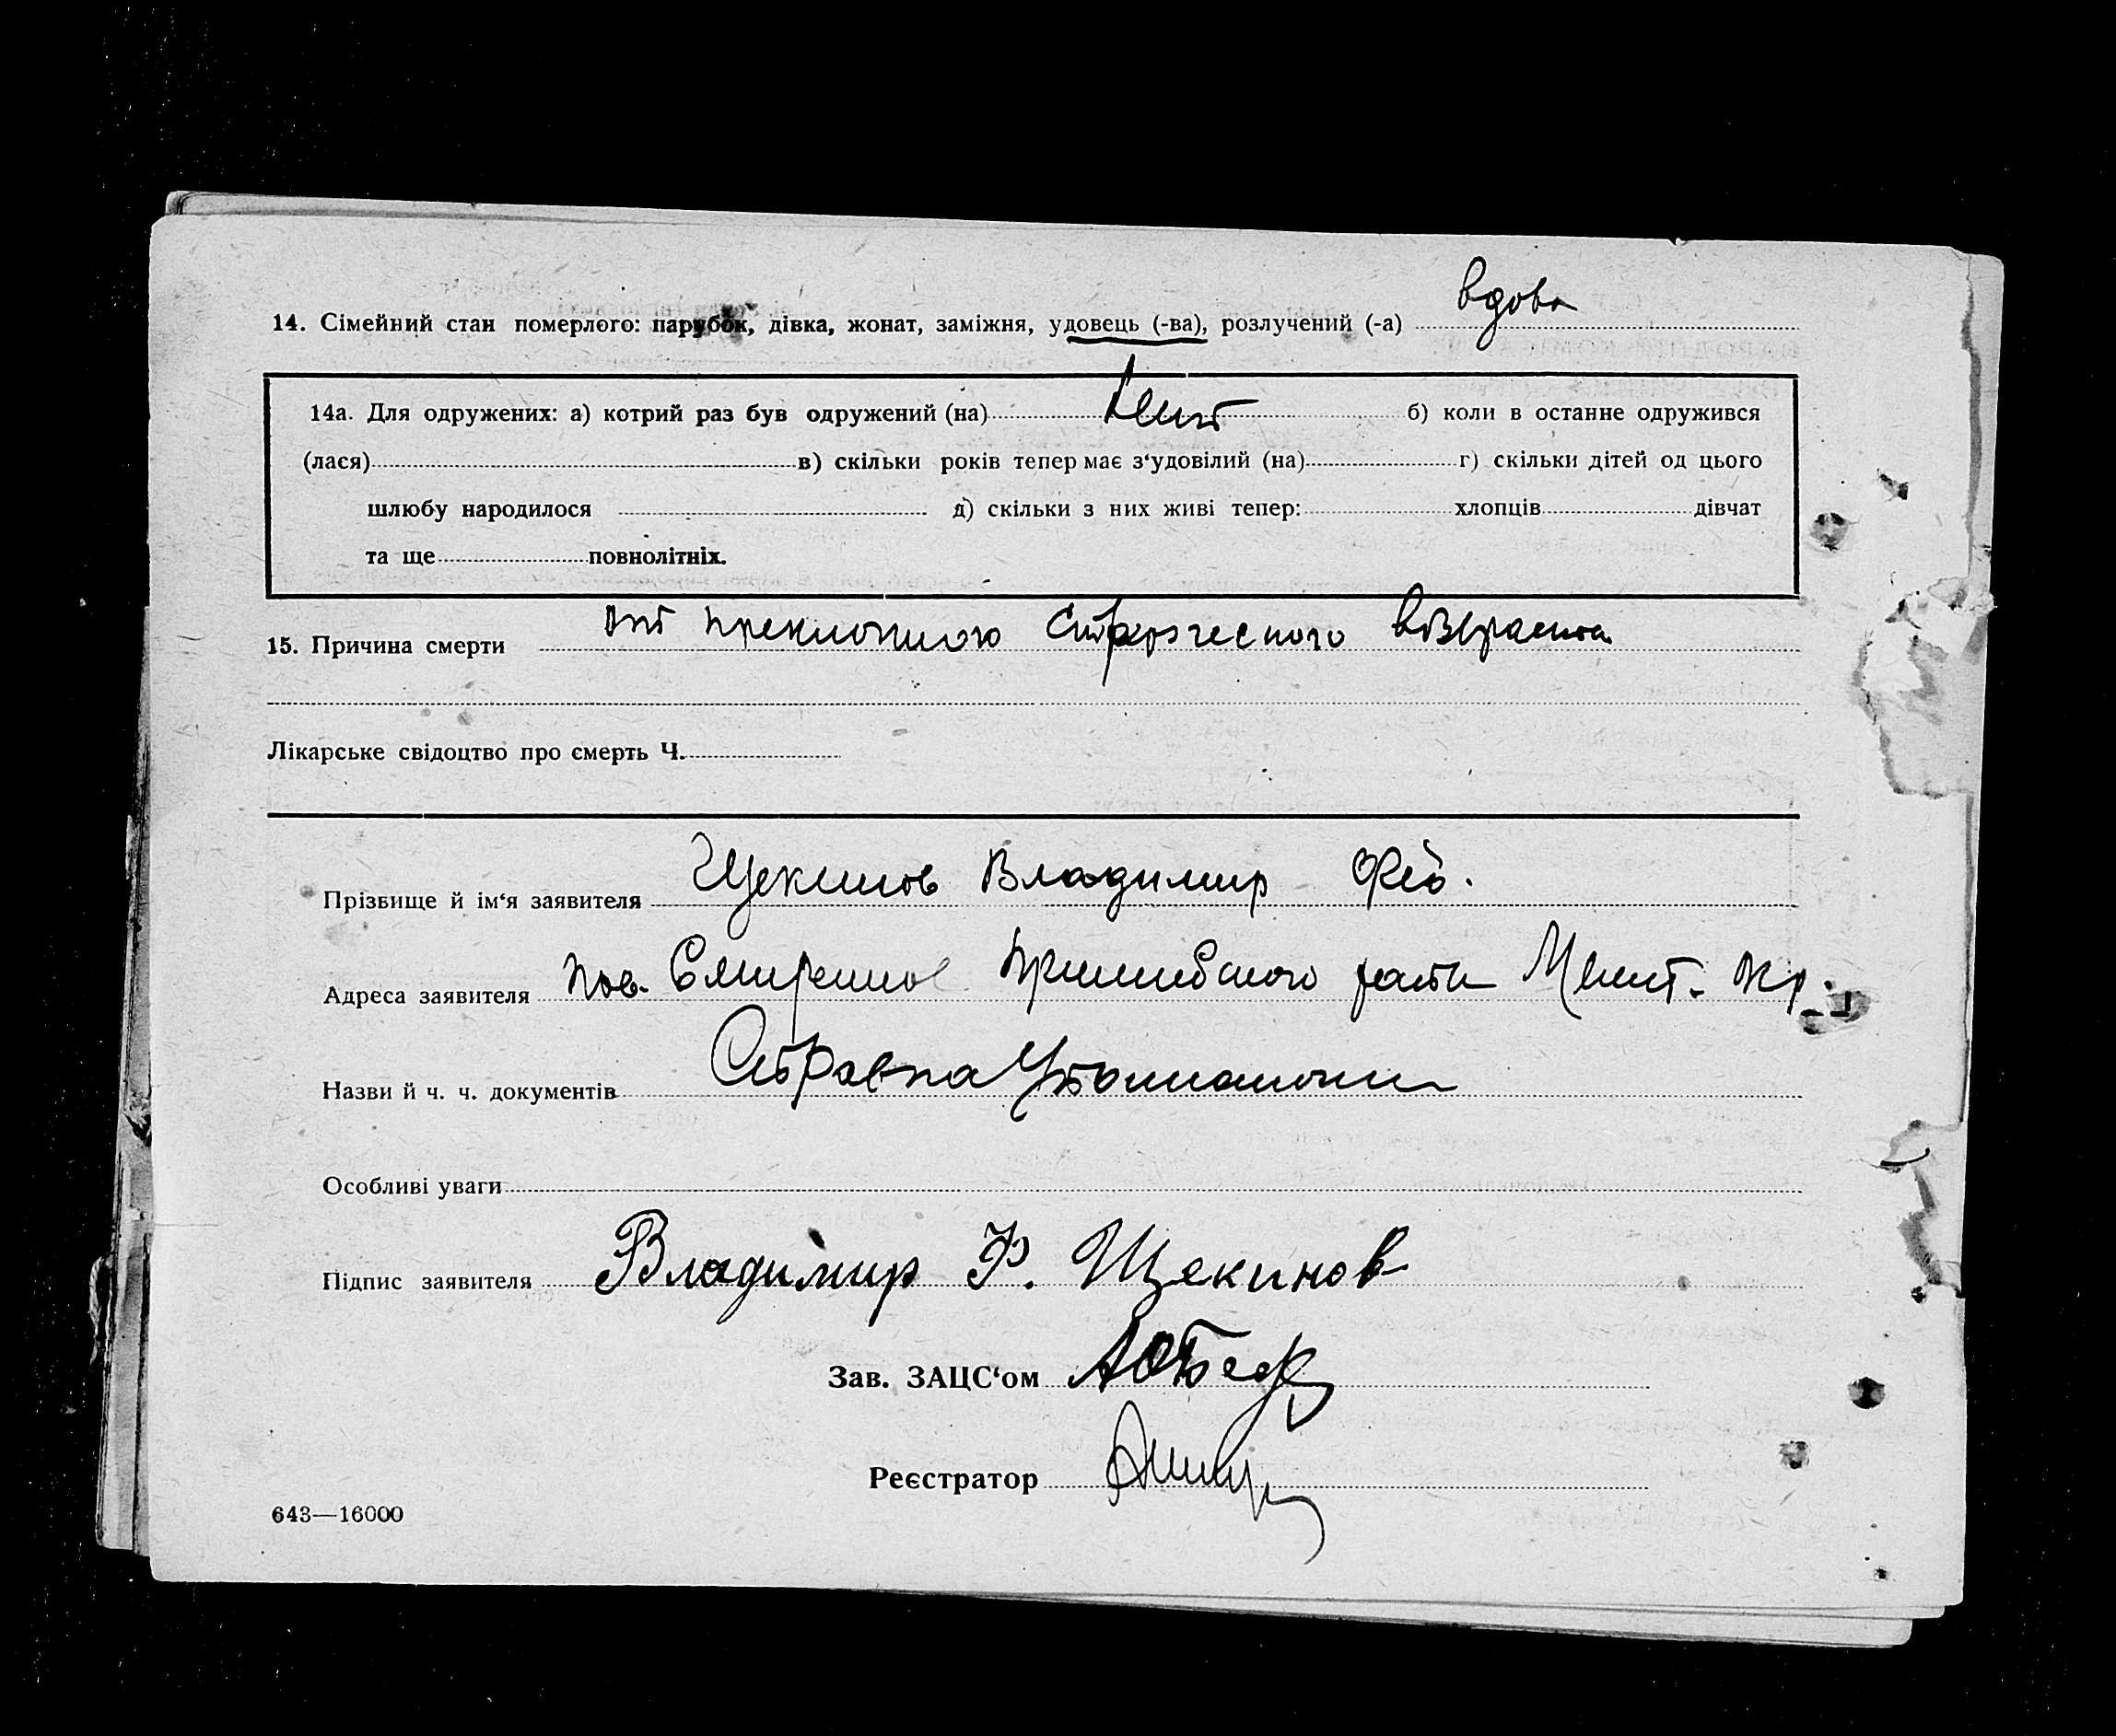 14. Сімейний стан померлого: парубок, дівка, жонат, заміжня, удовець (-ва), розлучений (-а) вдова
14а. Для одружених: а) котрий раз був одружений (на) б) коли в останнє одружився
(лася) в) скільки років тепер має з‘удовілий (на) г) скільки дітей од цього
шлюбу народилося д) скільки з них живі тепер: хлопців дівчат
та ще повнолітніх.
15. Причина смерти от преклонного старческого возраста
Лікарське свідоцтво про смерть Ч.
Прізвище й ім‘я заявителя Щекинов Владимир Фед.
Адреса заявителя Пришибского Мелит. окр.
Назви й ч. ч. документів Справка
Особливі уваги
Підпис заявителя Владимир Ф. Щекинов
Зав. ЗАЦС‘ом
Реєстратор
643—16000